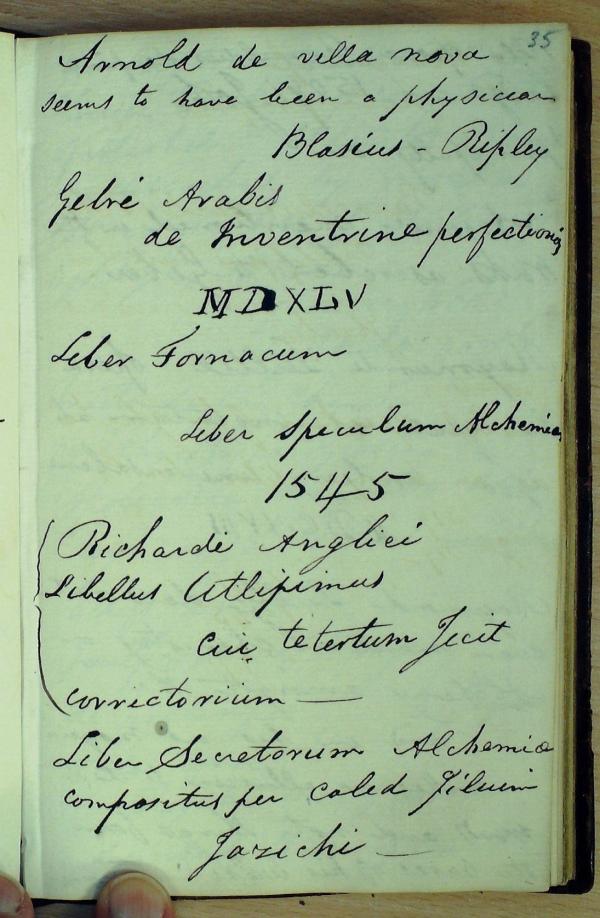 35
Arnold de villa nova
seems to have been a physician
Blasius - Ripley
Gebri Arabis
de Inventrine perfectionis
MDXLV
Liber Fornacum
Liber Speculum Alchemiæ
1545
Richardi Anglici
Libellus Utlipimus
Cui tetertum fecit
correctorium —
Liber Secretorum Alchemiæ
compositus per Caled filium
Jazichi —